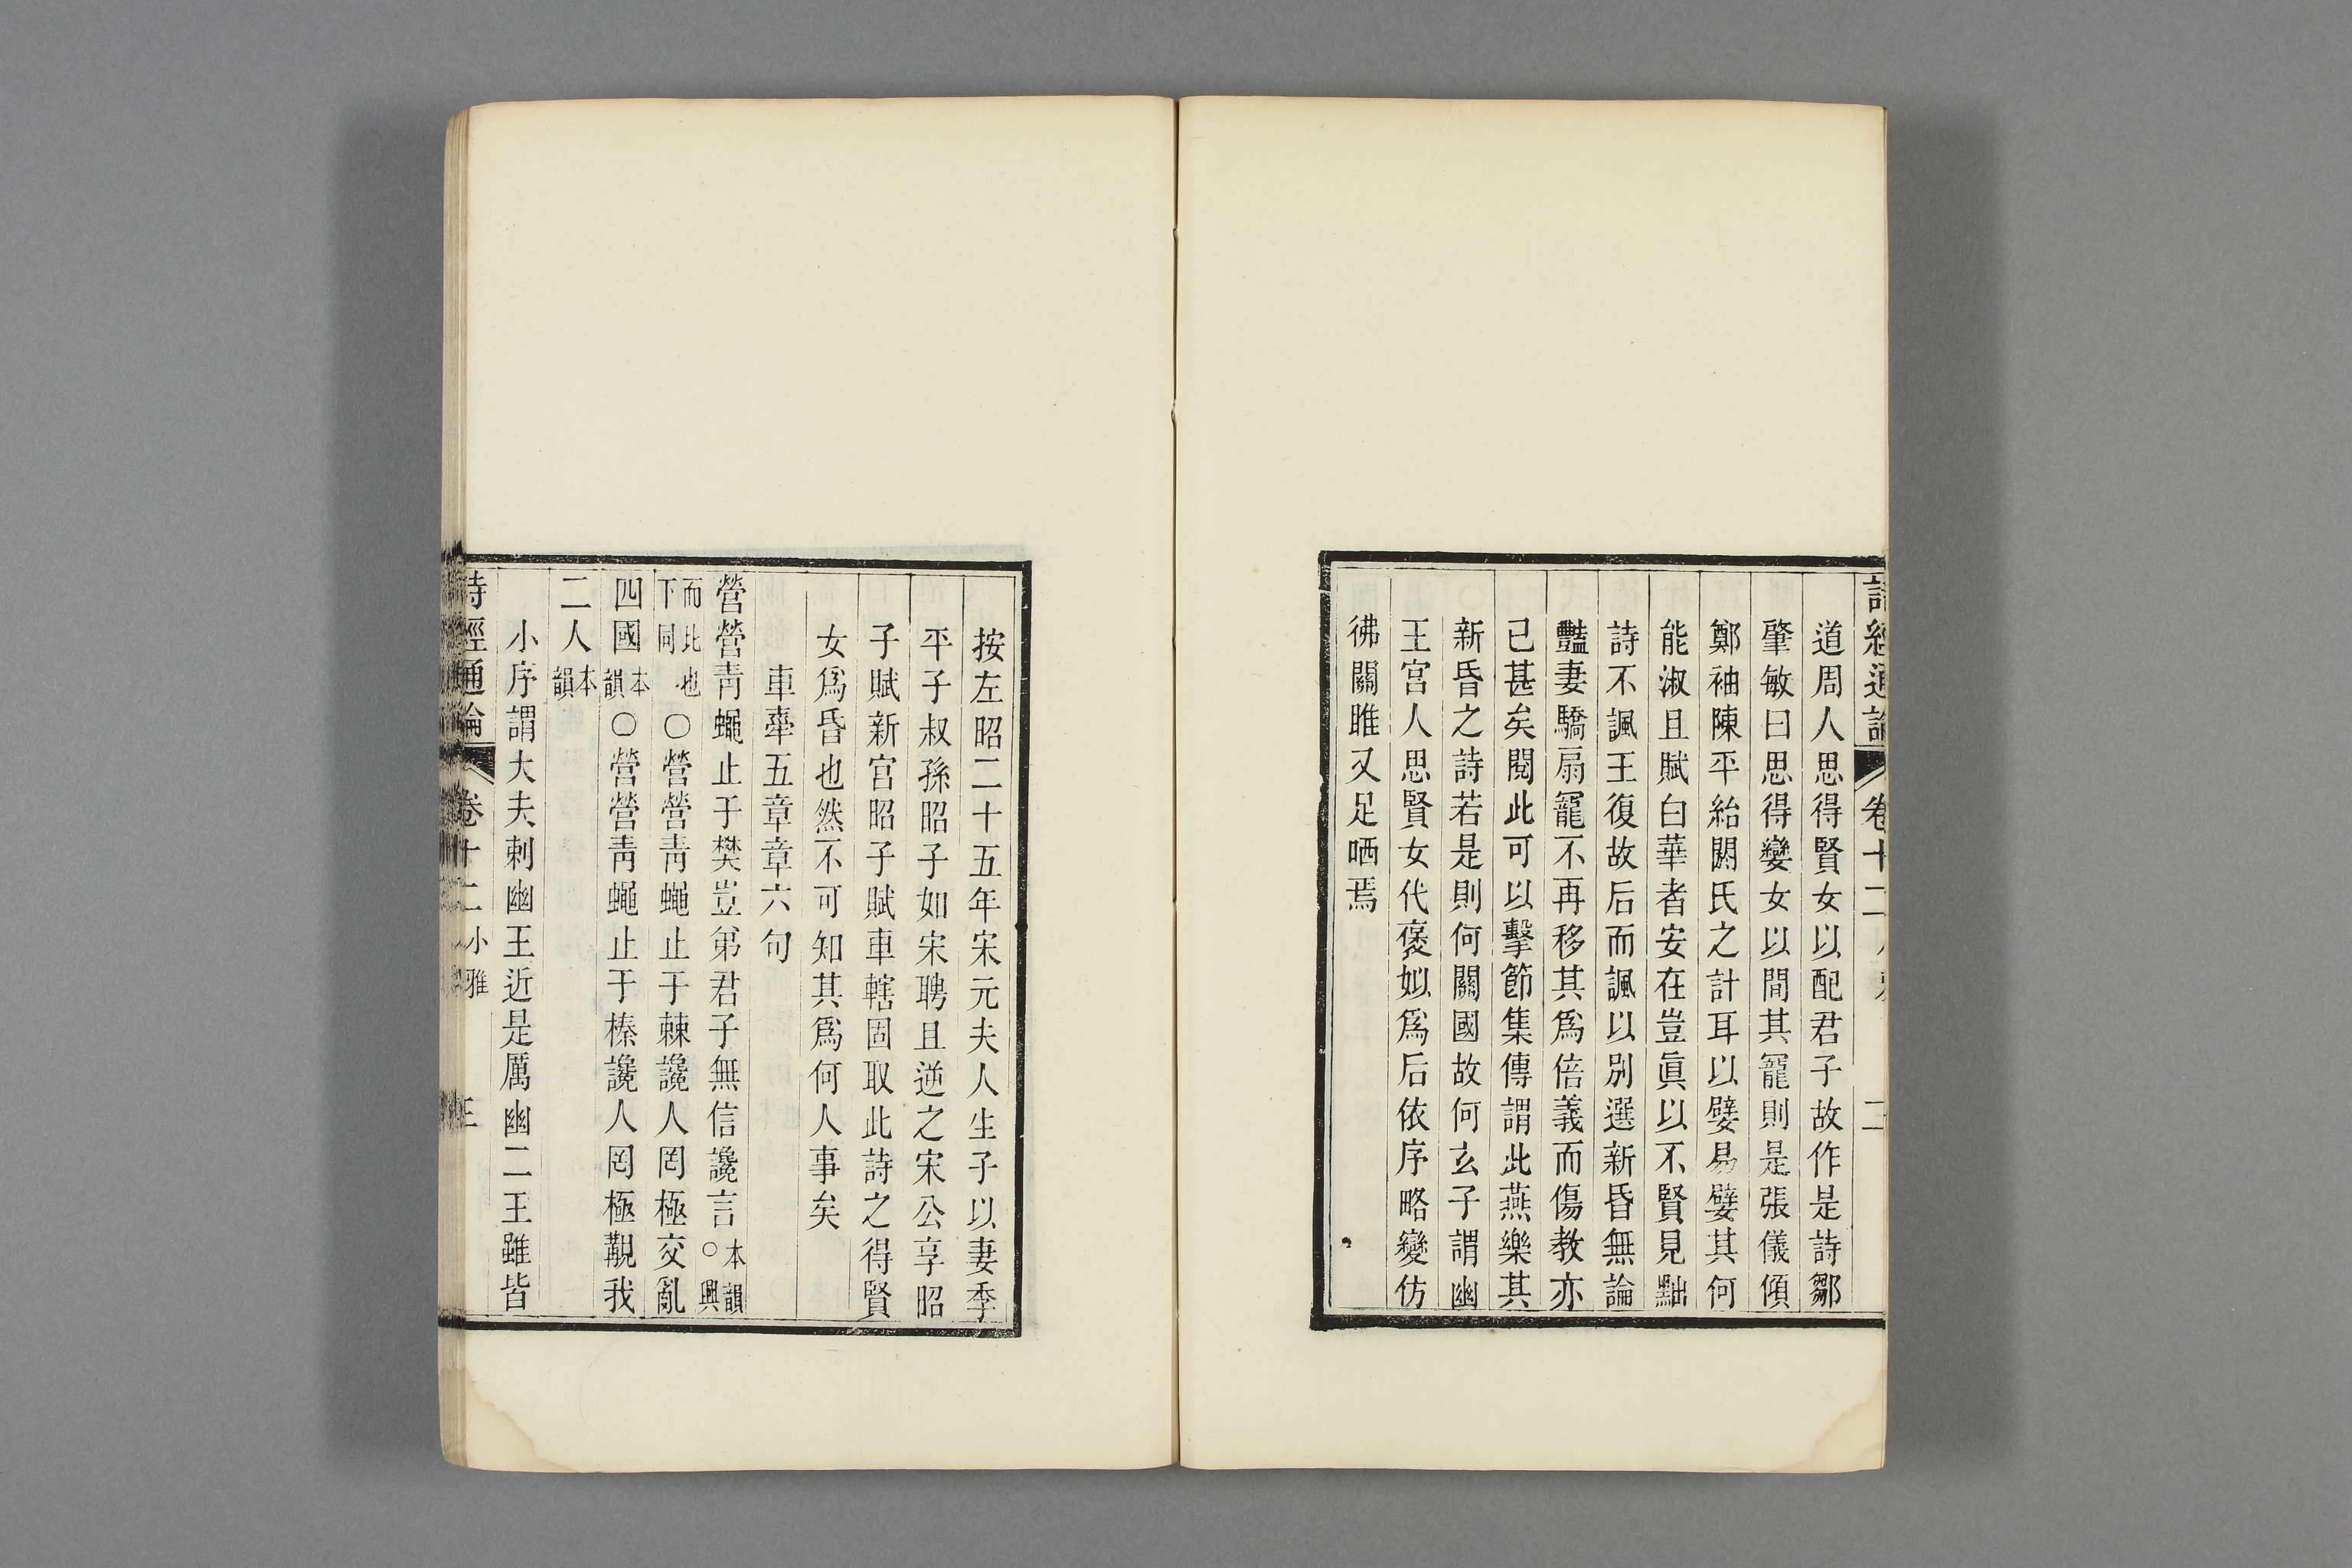 詩經通論 卷十二 二
道周人思得賢女以配君子故作是詩鄒
肇敏曰思得孌女以間其寵則是張儀傾
鄭袖陳平紿閼氏之計耳以嬖易嬖其何
能淑且賦白華者安在豈眞以不賢見黜
詩不諷王復故后而諷以别選新昏無論
豔妻驕扇寵不再移其爲倍義而傷教亦
已甚矣閱此可以擊節集傳謂此燕樂其
新昏之詩若是則何關國故何玄子謂幽
王宫人思賢女代褒姒爲后依序略變仿
彿關雎又足哂焉
按左昭二十五年宋元夫人生子以妻季
平子叔孫昭子如宋聘且逆之宋公享昭
子賦新宫昭子賦車轄固取此詩之得賢
女爲昏也然不可知其爲何人事矣
車舝五章章六句
營營靑蠅止于樊豈弟君子無信讒言本韻○興
而比也下同○營營靑蠅止于棘讒人罔極交亂
四國本韻○營營靑蠅止于榛讒人罔極覯我
二人本韻
小序謂大夫刺幽王近是厲幽二王雖皆
詩經通論 卷十二 小雅 三